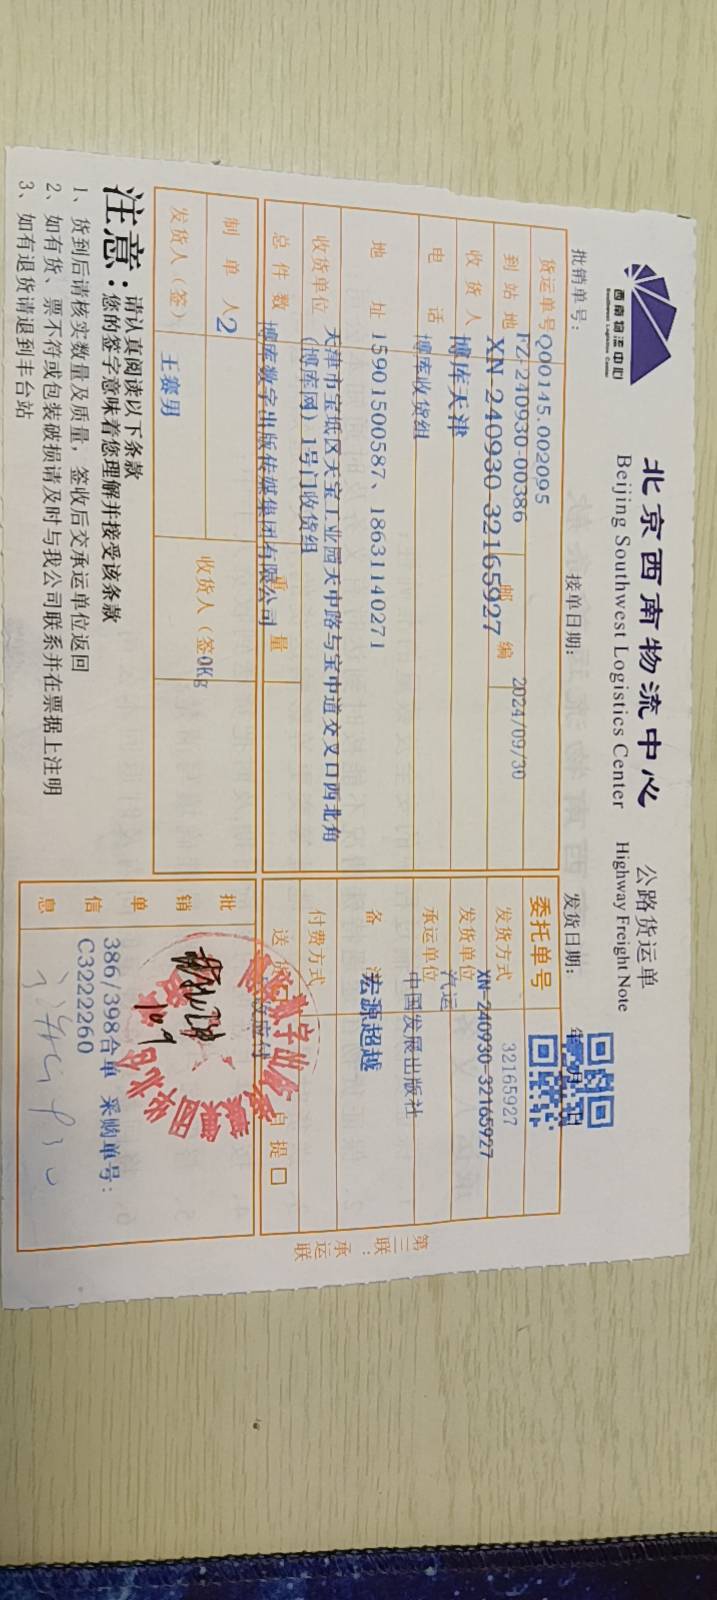 西南物流中心
Southwest Logistics Center
北京西南物流中心 公路货运单
Beijing Southwest Logistics Center Highway Freight Note
批销单号： 接单日期： 发货日期： 年 月 日
货运单号 Q00145.002095
FZ-240930-00386 2024/09/30
到站地 XN-240930-32165927 邮编
收货人 博库天津
电话 博库收货组
地址 15901500587、18631140271
天津市宝坻区天宝工业园天中路与宝中道交叉口西北角
收货单位 （博库网）1号门收货组
总件数 博库数字出版传媒集团有限公司 重量
制单人 2 收货人（签 0KG
发货人（签） 王赛男
委托单号
32165927
发货方式 XN-240930-32165927
发货单位 汽运
承运单位 中国发展出版社
备 宏源超越
付费方式
送 应付 自提 □
批销单信息
109
386/398合单 采购单号：
C3222260
第三联：承运联
注意： 请认真阅读以下条款
您的签字意味着您理解并接受该条款
1、货到后请核实数量及质量，签收后交承运单位返回
2、如有货、票不符或包装破损请及时与我公司联系并在票据上注明
3、如有退货请退到丰台站